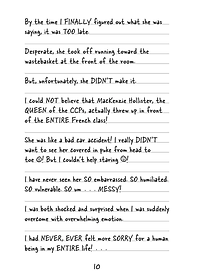 By the time I FINALLY figured out what she was
saying, it was TOO late.
Desperate, she took off running toward the
wastebasket at the front of the room.
But, unfortunately, she DIDN'T make it.
I could NOT believe that MacKenzie Hollister, the
QUEEN of the CCPs, actually threw up in front
of the ENTIRE French class!
She was like a bad car accident! I really DIDN'T
want to see her covered in puke from head to
toe ☹! But I couldn't help staring ☺!
I have never seen her SO embarrassed. SO humiliated.
SO vulnerable. SO um . . . MESSY!
I was both shocked and surprised when I was suddenly
overcome with overwhelming emotion.
I had NEVER, EVER felt more SORRY for a human
being in my ENTIRE life! . . .
10